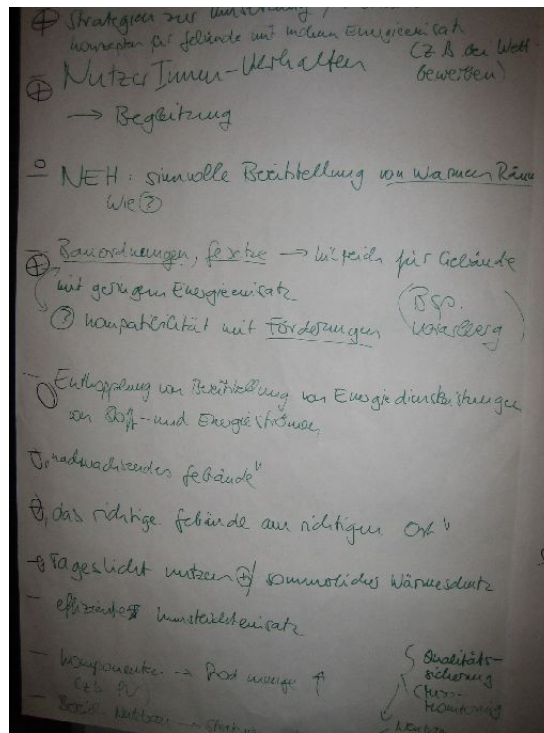 ⊕ Strategien zur Umsetzung
konzepten für Gebäude mit Energieeinsatz
(z B bei Wett-
bewerben)
⊕ NutzerInnen-Verhalten
→ Begleitung
NEH: sinnvolle Bereitstellung von warmen Räumen
Wie ?
⊕ Bauordnungen, Gesetze → für Gebäude
mit geringem Energieeinsatz
? Kompatibilität mit Förderungen
(Bsp.
Vorarlberg)
Entkopplung von Bereitstellung von Energiedienstleistungen
von Stoff- und Energieströmen
"nachwachsendes Gebäude"
"das richtige Gebäude am richtigen Ort"
Tageslicht nutzen ⊕ sommerlicher Wärmeschutz
– effizienter Kunstlichteinsatz
– Komponenten → Prod menge ↑
(zB PV)
Qualitäts-
sicherung